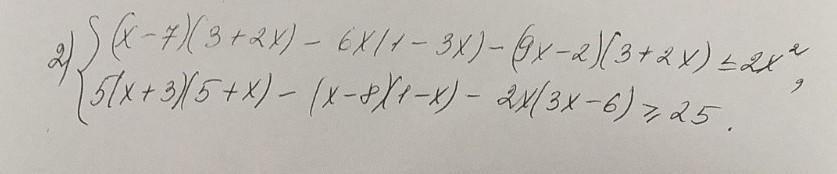 2) { (x-7)(3+2x) - 6x(1-3x) - (9x-2)(3+2x) ≤ 2x²,
5(x+3)(5+x) - (x-8)(1-x) - 2x(3x-6) ≥ 25.